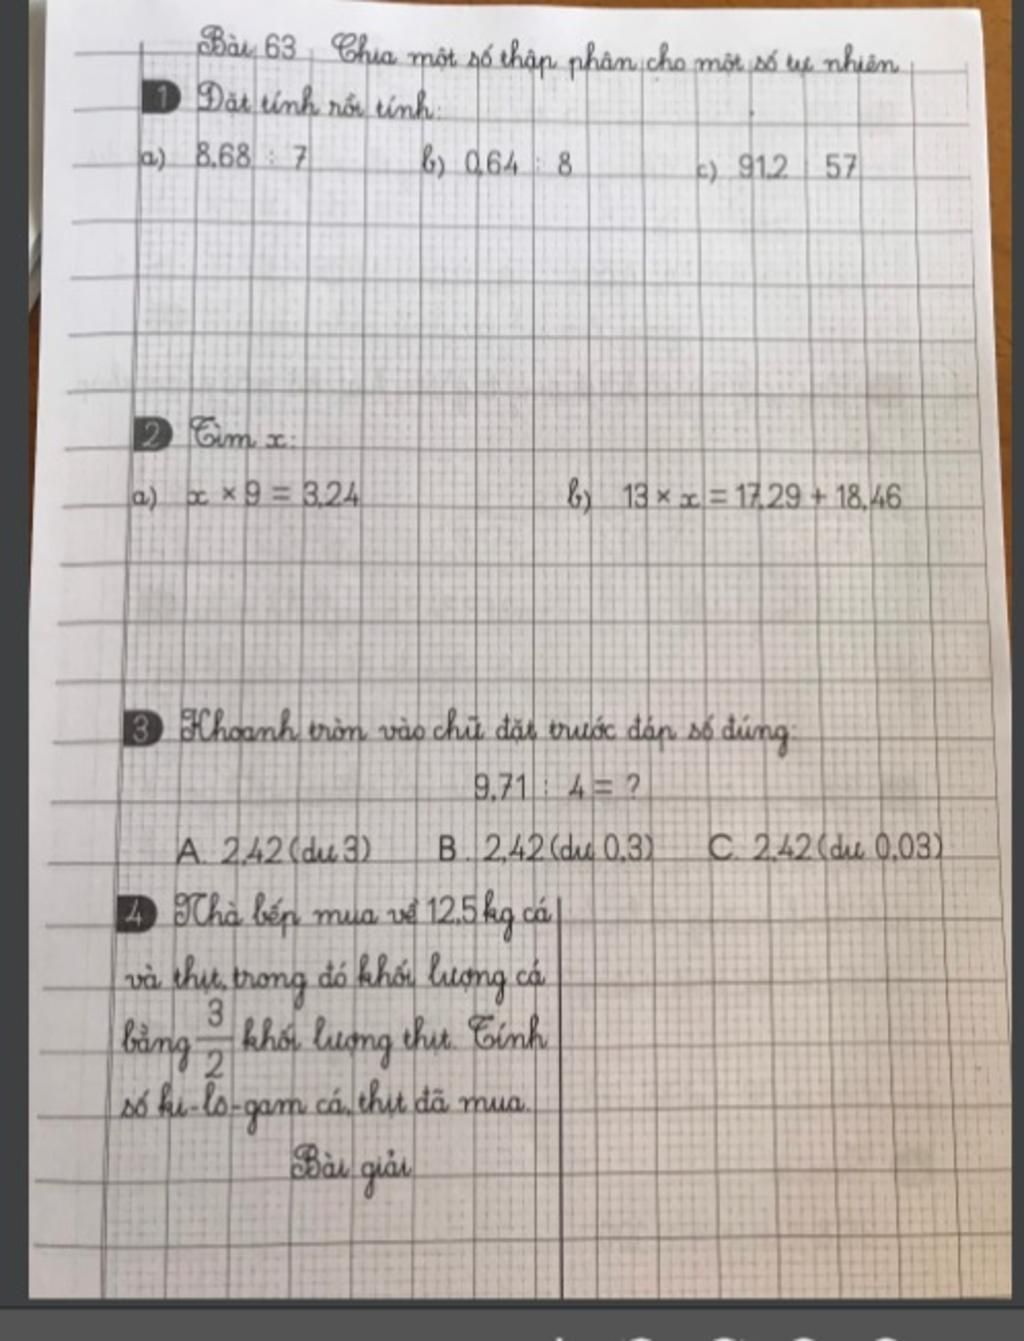 Bài 63. Chia một số thập phân cho một số tự nhiên
1 Đặt tính rồi tính:
a) 8,68 : 7 b) 0,64 : 8 c) 91,2 : 57
2 Tìm x:
a) x × 9 = 3,24 b) 13 × x = 17,29 + 18,46
3 Khoanh tròn vào chữ đặt trước đáp số đúng:
9,71 : 4 = ?
A. 2,42 (dư 3) B. 2,42 (dư 0,3) C. 2,42 (dư 0,03)
4 Nhà bếp mua về 12,5kg cá
và thịt, trong đó khối lượng cá
bằng 3/2 khối lượng thịt. Tính
số ki-lô-gam cá, thịt đã mua.
Bài giải